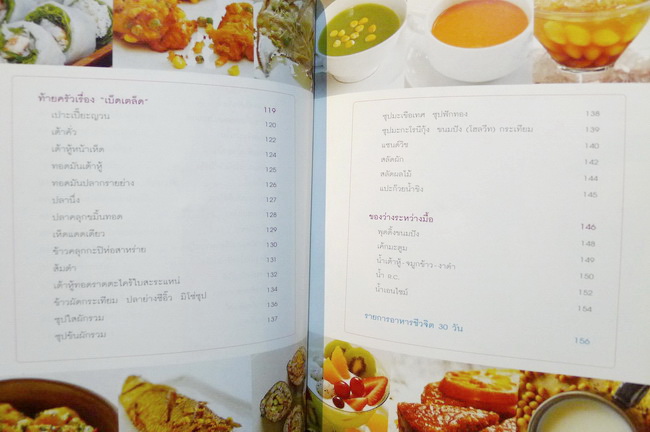 ท้ายครัวเรื่อง "เบ็ดเตล็ด" 119
เปาะเปี๊ยะญวน 120
เต้าคั่ว 122
เต้าหู้หน้าเห็ด 124
ทอดมันเต้าหู้ 125
ทอดมันปลากรายย่าง 126
ปลานึ่ง 127
ปลาคลุกขมิ้นทอด 128
เห็ดแดดเดียว 129
ข้าวคลุกกะปิห่อสาหร่าย 130
ส้มตำ 131
เต้าหู้ทอดราดตะไคร้ใบสะระแหน่ 132
ข้าวผัดกระเทียม ปลาย่างซีอิ๊ว มิโซ่ซุป 134
ซุปใสผักรวม 136
ซุปข้นผักรวม 137
ซุปมะเขือเทศ ซุปฟักทอง 138
ซุปมะกะโรนีกุ้ง ขนมปัง (โฮลวีท) กระเทียม 139
แซนด์วิช 140
สลัดผัก 142
สลัดผลไม้ 144
แปะก๊วยน้ำขิง 145
ของว่างระหว่างมื้อ 146
พุดดิ้งขนมปัง 148
เค้กมะตูม 149
น้ำเต้าหู้-จมูกข้าว-งาดำ 150
น้ำ อ.c. 152
น้ำเอนไซม์ 154
รายการอาหารชีวจิต 30 วัน 156